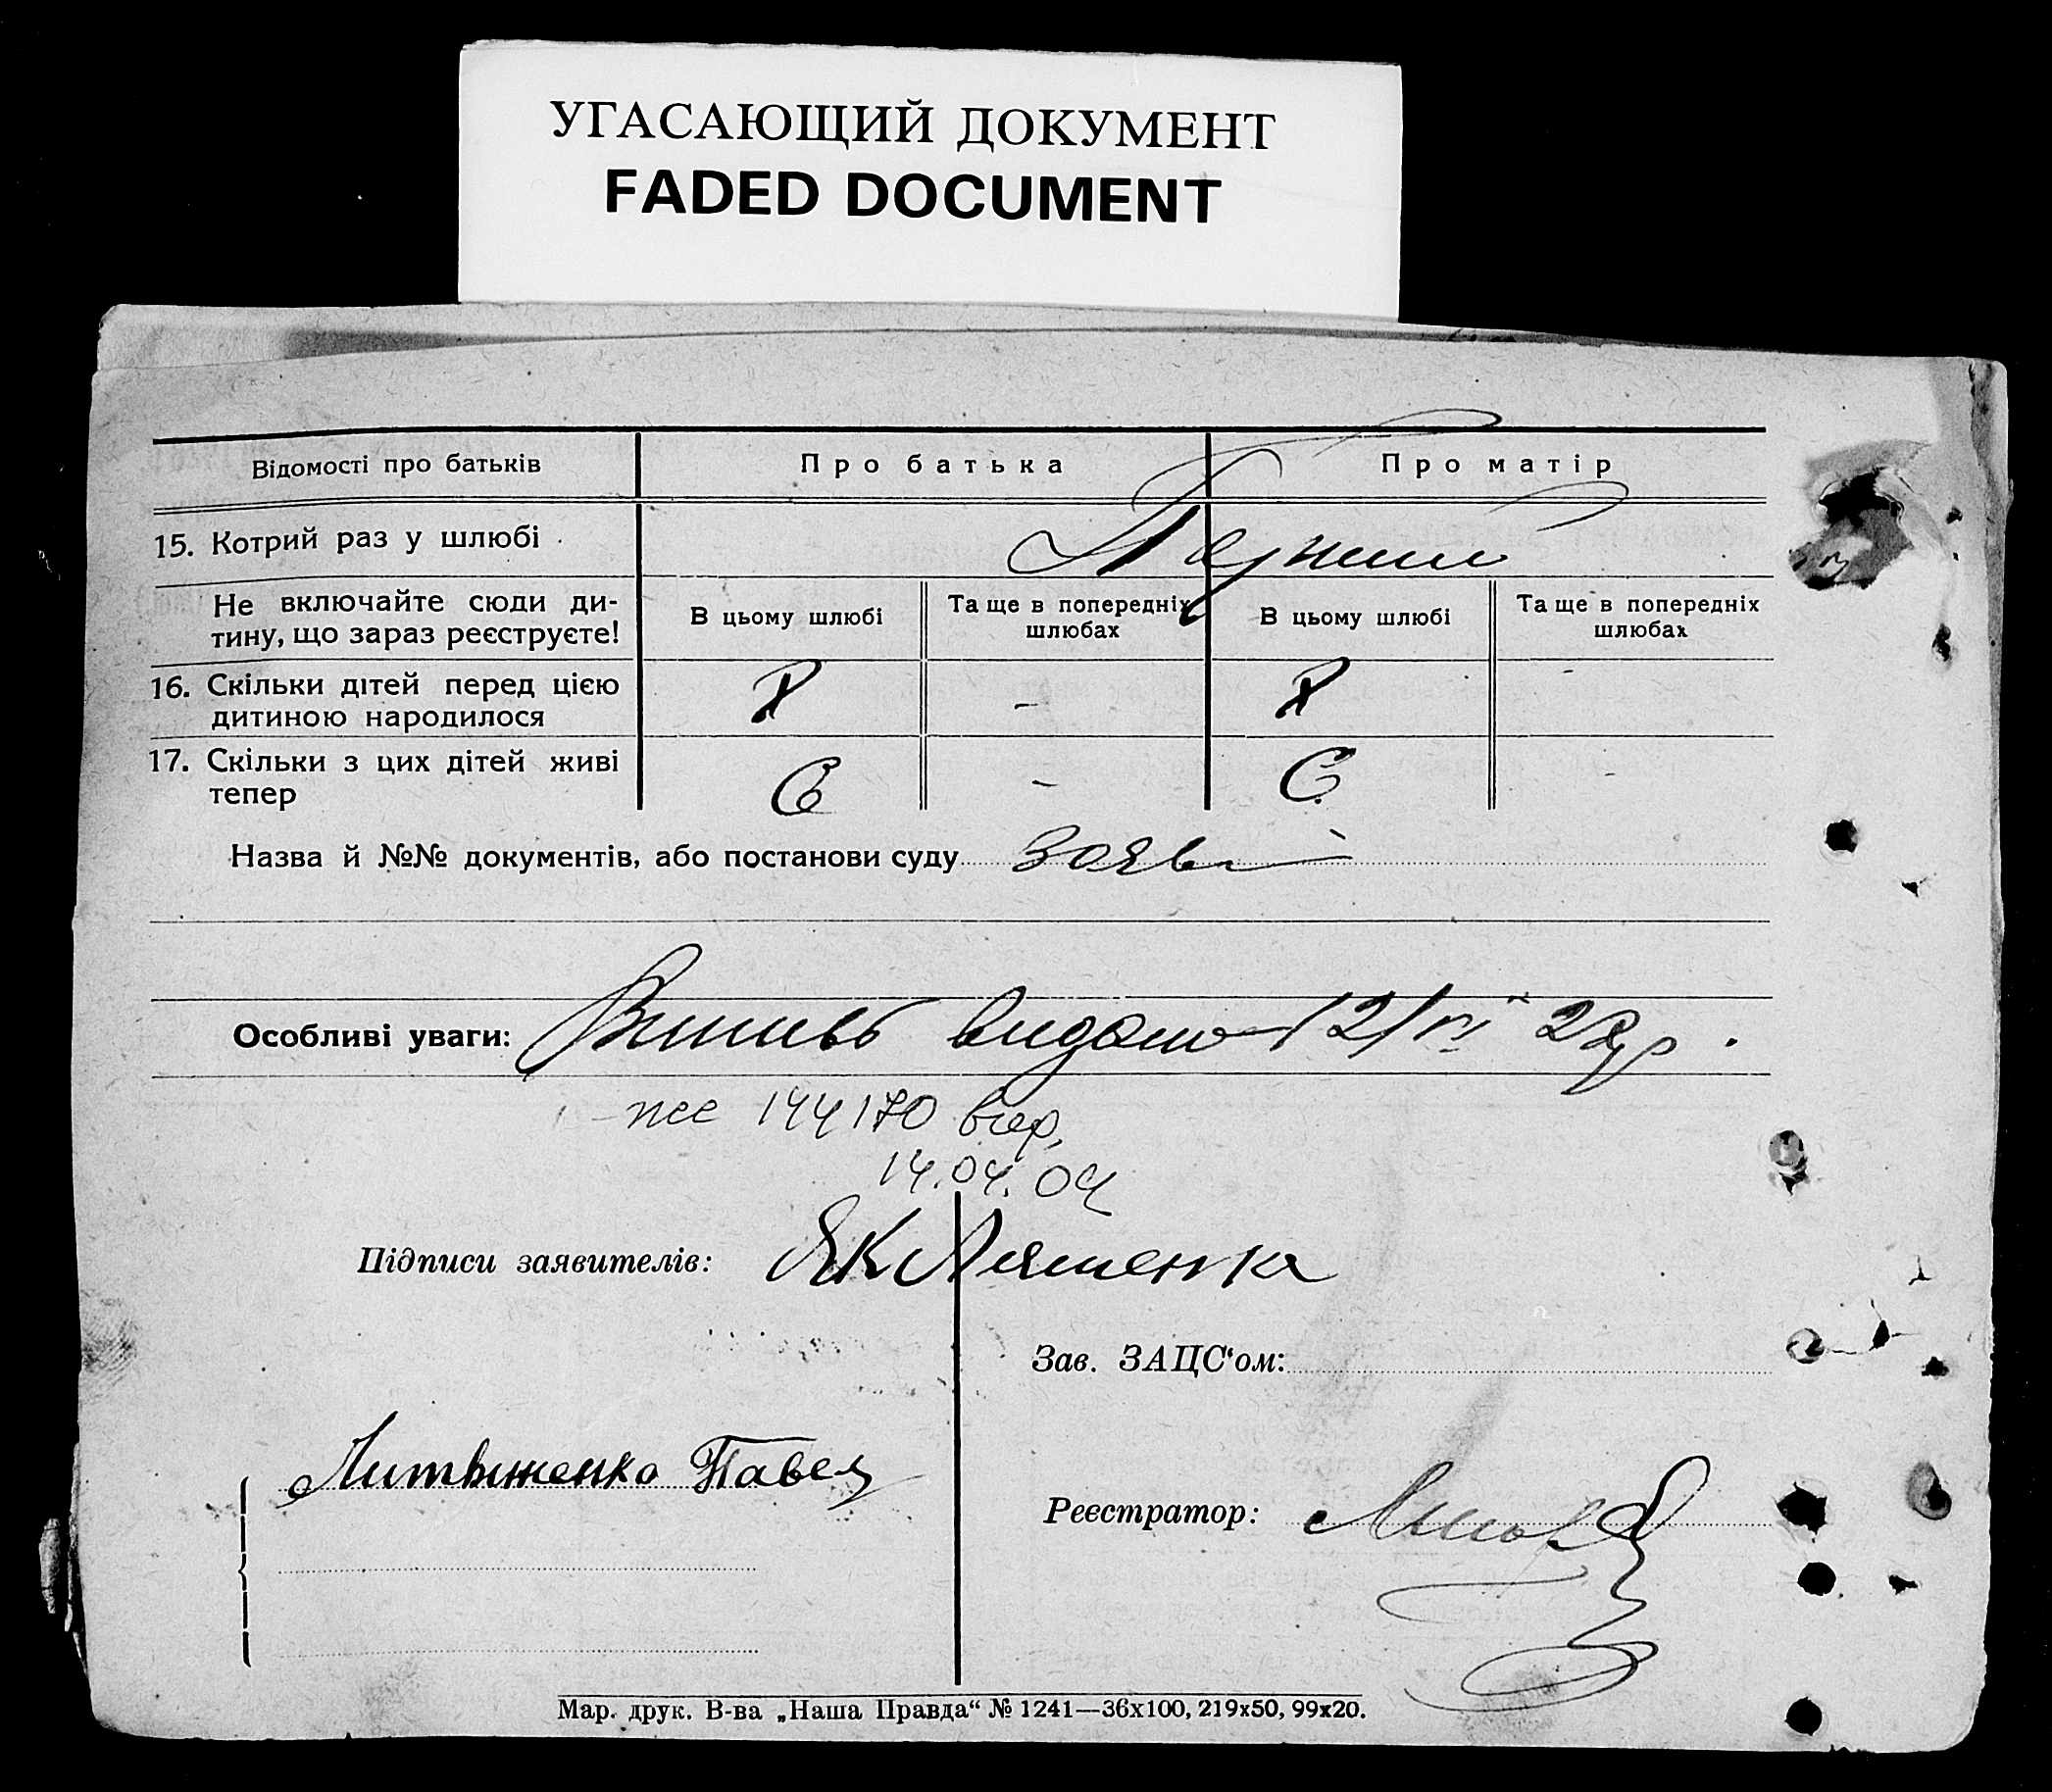 УГАСАЮЩИЙ ДОКУМЕНТ
FADED DOCUMENT
Відомості про батьків Про батька Про матір
15. Котрий раз у шлюбі
Не включайте сюди ди-
тину, що зараз реєструєте!
В цьому шлюбі Та ще в попередніх
шлюбах
В цьому шлюбі Та ще в попередніх
шлюбах
16. Скільки дітей перед цією
дитиною народилося
- -
17. Скільки з цих дітей живі
тепер
- -
Назва й №№ документів, або постанови суду
Особливі уваги: видано 12/VI
144170
14.04.04
Підписи заявителів: ЯК Ляшенка
Зав. ЗАЦС‘ом:
Павел
Реєстратор:
Мар. друк. В-ва „Наша Правда“ № 1241—36х100, 219х50, 99х20.